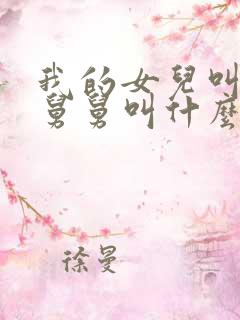 我的女兒叫
舅舅叫什麼
徐曼